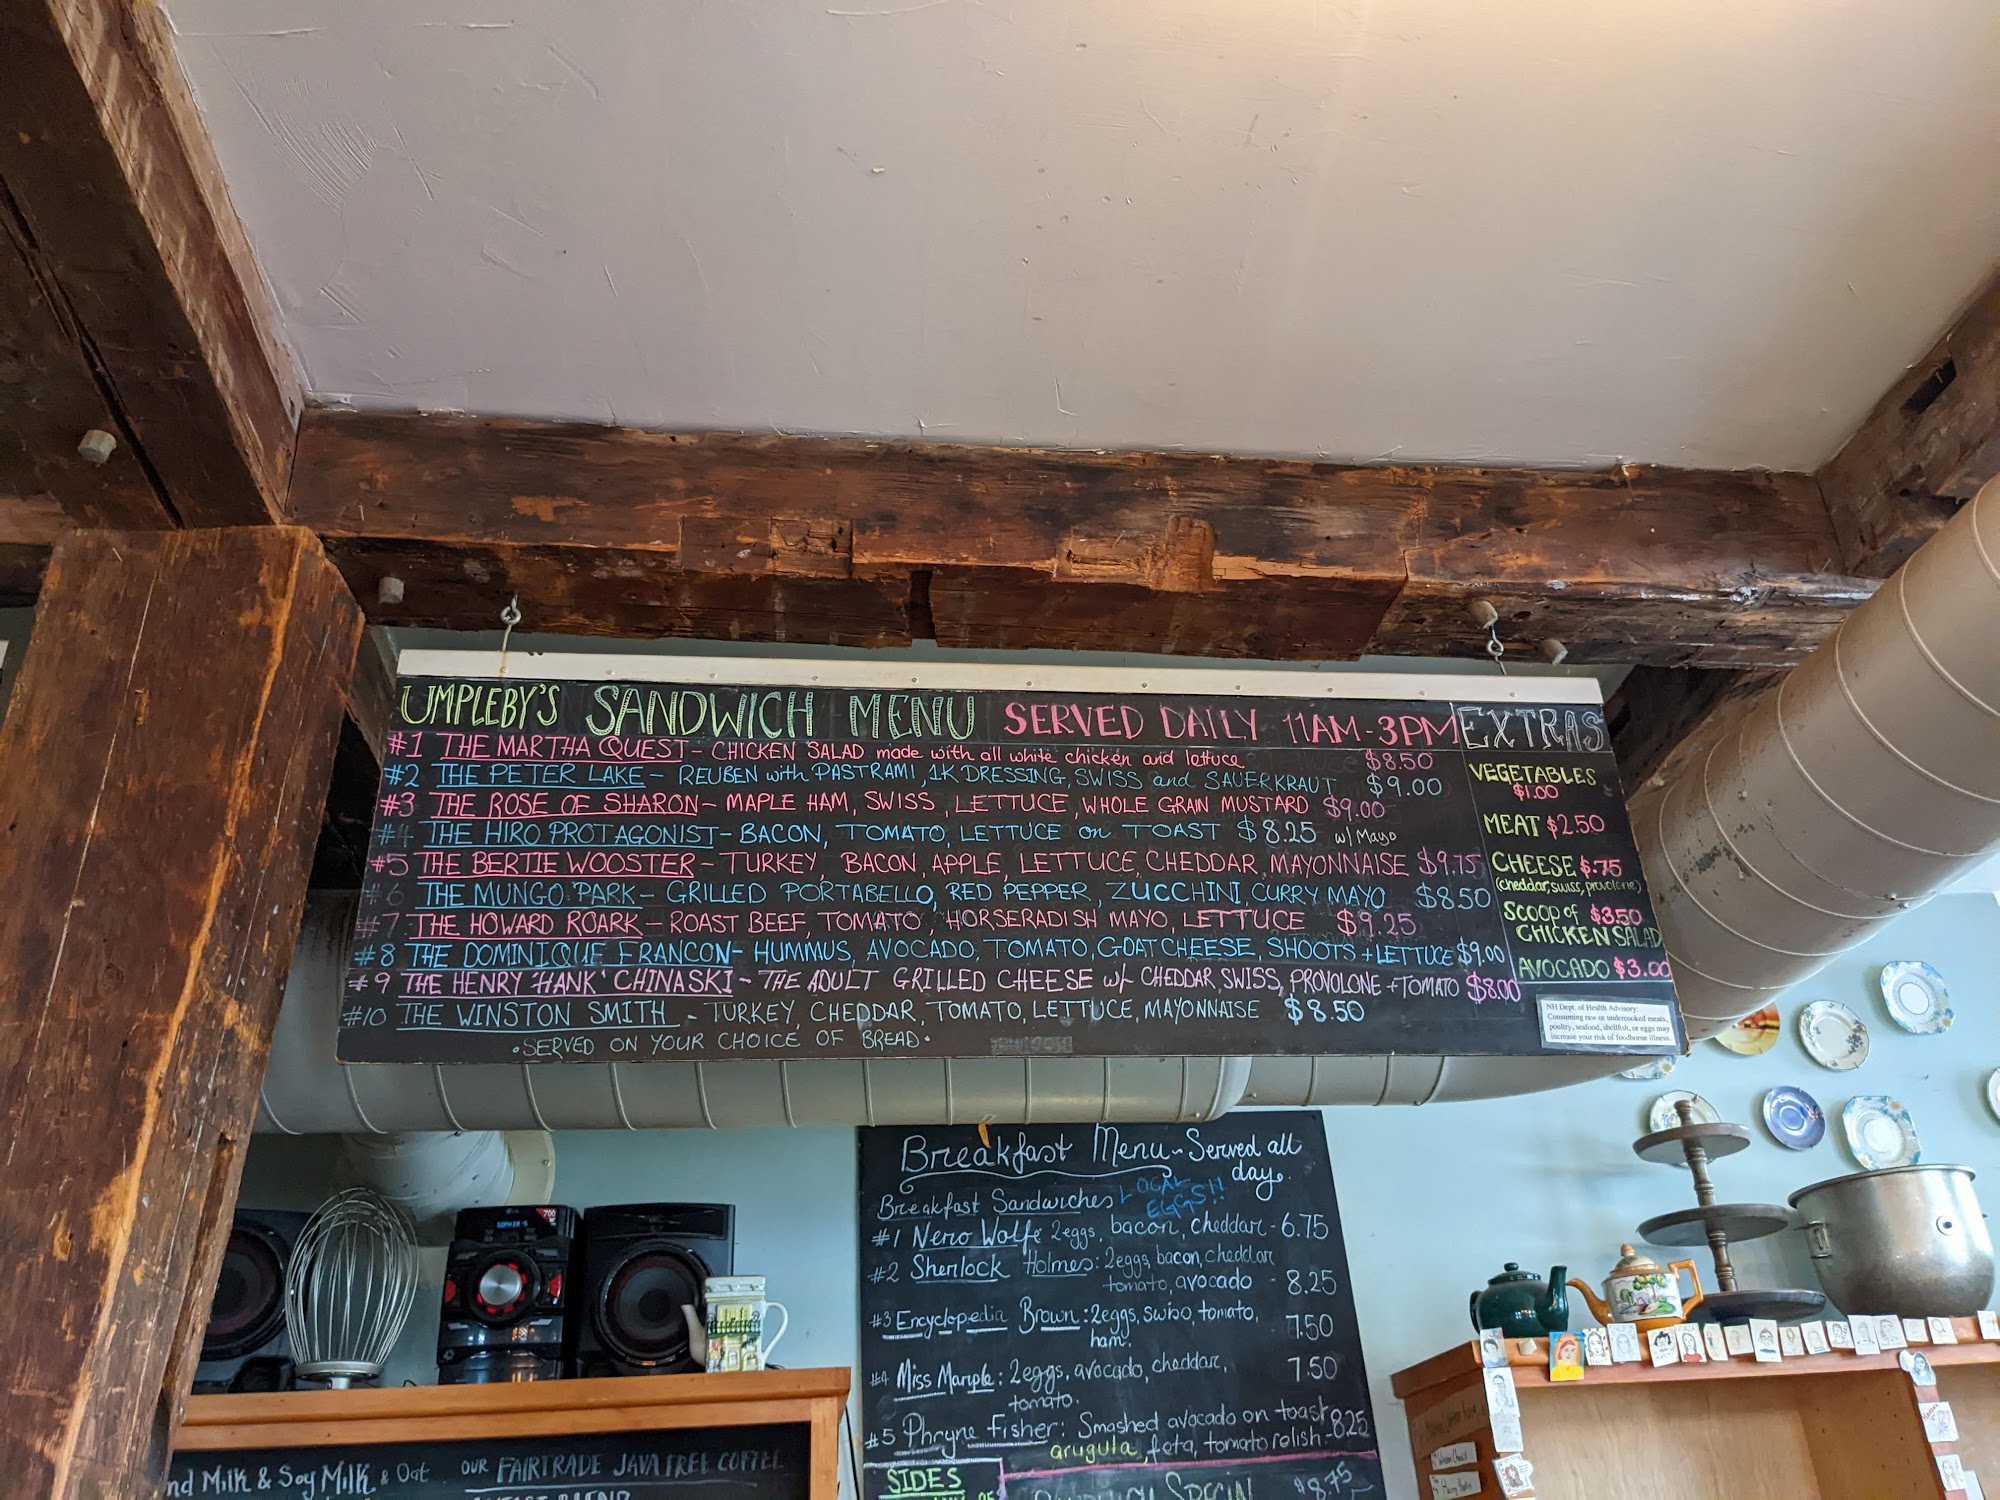 UMPLEBY'S SANDWICH MENU SERVED DAILY 11AM-3PM
#1 THE MARTHA QUEST - CHICKEN SALAD made with all white chicken and lettuce $8.50
#2 THE PETER LAKE - REUBEN with PASTRAMI, 1K DRESSING, SWISS and SAUERKRAUT $9.00
#3 THE ROSE OF SHARON - MAPLE HAM, SWISS, LETTUCE, WHOLE GRAIN MUSTARD $9.00
#4 THE HIRO PROTAGONIST - BACON, TOMATO, LETTUCE on TOAST $8.25 w/ Mayo
#5 THE BERTIE WOOSTER - TURKEY, BACON, APPLE, LETTUCE, CHEDDAR, MAYONNAISE $9.75
#6 THE MUNGO PARK - GRILLED PORTABELLO, RED PEPPER, ZUCCHINI, CURRY MAYO $8.50
#7 THE HOWARD ROARK - ROAST BEEF, TOMATO, HORSERADISH MAYO, LETTUCE $9.25
#8 THE DOMINIQUE FRANCON - HUMMUS, AVOCADO, TOMATO, GOAT CHEESE, SHOOTS + LETTUCE $9.00
#9 THE HENRY 'HANK' CHINASKI - THE ADULT GRILLED CHEESE w/ CHEDDAR, SWISS, PROVOLONE + TOMATO $8.00
#10 THE WINSTON SMITH - TURKEY, CHEDDAR, TOMATO, LETTUCE, MAYONNAISE $8.50
• SERVED ON YOUR CHOICE OF BREAD •
EXTRAS
VEGETABLES
$1.00
MEAT $2.50
CHEESE $.75
(cheddar, swiss, provolone)
SCOOP of $3.50
CHICKEN SALAD
AVOCADO $3.00
NH Dept. of Health Advisory:
Consuming raw or undercooked meats,
poultry, seafood, shellfish, or eggs may
increase your risk of foodborne illness.
Breakfast Menu ~ Served all
day.
Breakfast Sandwiches LOCAL
EGGS!!
#1 Nero Wolfe 2eggs, bacon, cheddar - 6.75
#2 Sherlock Holmes: 2eggs, bacon, cheddar
tomato, avocado - 8.25
#3 Encyclopedia Brown: 2eggs, swiss, tomato,
ham. 7.50
#4 Miss Marple: 2eggs, avocado, cheddar, 7.50
tomato.
#5 Phryne Fisher: Smashed avocado on toast 8.25
arugula, feta, tomato relish -
SIDES
SPECIAL $8.75
Milk & Soy Milk & Oat
OUR FAIRTRADE JAVA FREE COFFEE
700
W